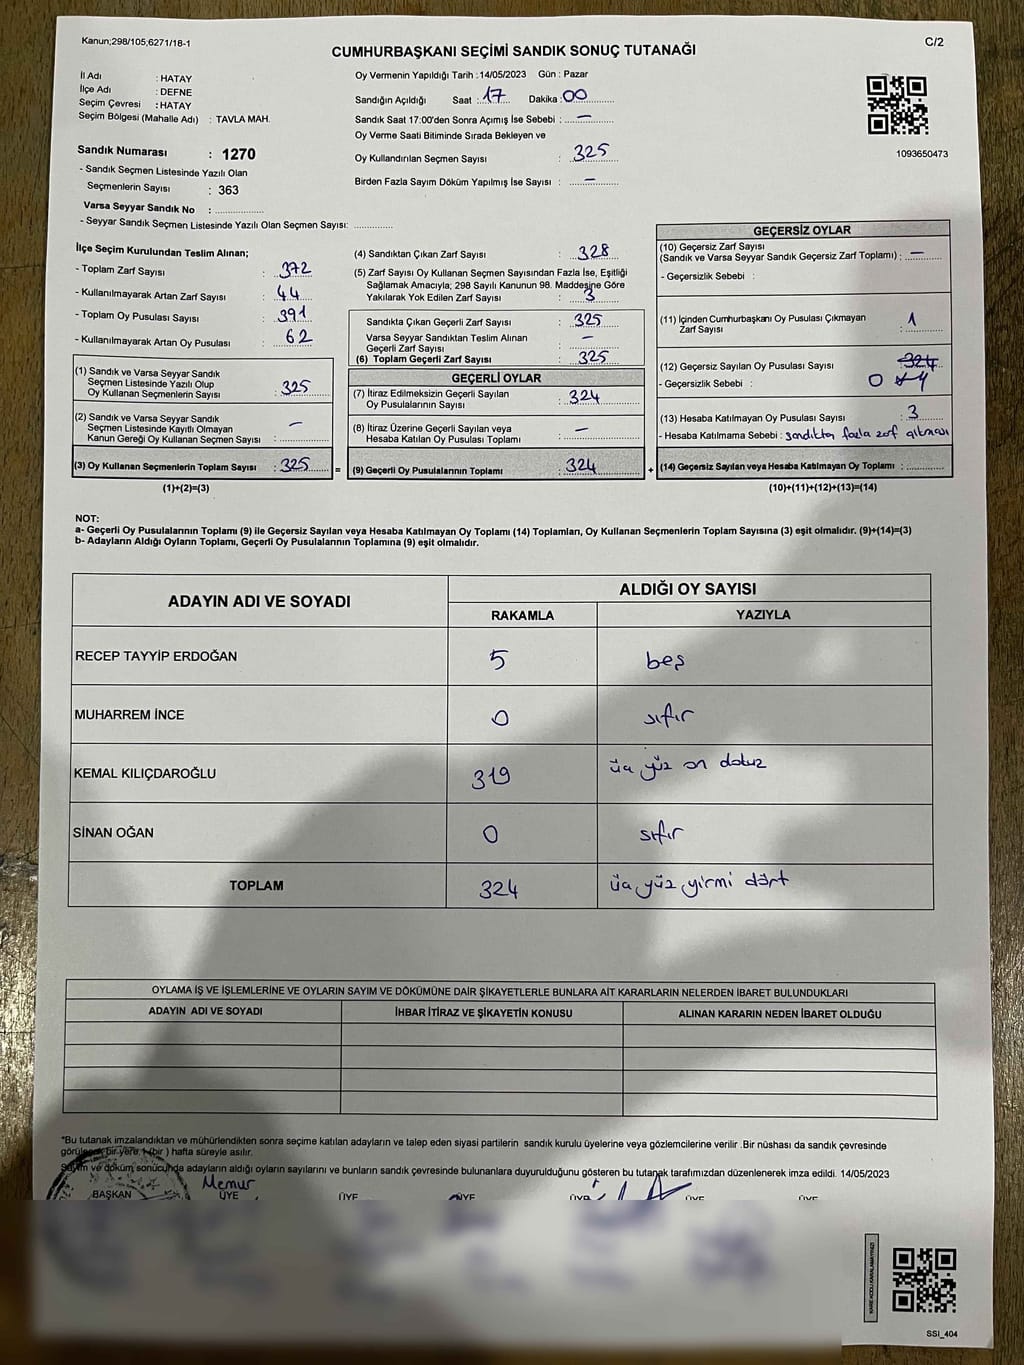 Kanun;298/105;6271/18-1
C/2
CUMHURBAŞKANI SEÇİMİ SANDIK SONUÇ TUTANAĞI
İl Adı : HATAY
İlçe Adı : DEFNE
Seçim Çevresi : HATAY
Seçim Bölgesi (Mahalle Adı) : TAVLA MAH.
Sandık Numarası : 1270
- Sandık Seçmen Listesinde Yazılı Olan
Seçmenlerin Sayısı : 363
Varsa Seyyar Sandık No : ................
- Seyyar Sandık Seçmen Listesinde Yazılı Olan Seçmen Sayısı: .............
Oy Vermenin Yapıldığı Tarih : 14/05/2023 Gün : Pazar
Sandığın Açıldığı Saat : 17 Dakika : 00
Sandık Saat 17:00'den Sonra Açımış İse Sebebi : —
Oy Verme Saati Bitiminde Sırada Bekleyen ve
Oy Kullandırılan Seçmen Sayısı : 325
Birden Fazla Sayım Döküm Yapılmış İse Sayısı : —
1093650473
İlçe Seçim Kurulundan Teslim Alınan;
- Toplam Zarf Sayısı : 372
- Kullanılmayarak Artan Zarf Sayısı : 44
- Toplam Oy Pusulası Sayısı : 391
- Kullanılmayarak Artan Oy Pusulası : 62
(1) Sandık ve Varsa Seyyar Sandık
Seçmen Listesinde Yazılı Olup
Oy Kullanan Seçmenlerin Sayısı : 325
(2) Sandık ve Varsa Seyyar Sandık
Seçmen Listesinde Kayıtlı Olmayan
Kanun Gereği Oy Kullanan Seçmen Sayısı : —
(3) Oy Kullanan Seçmenlerin Toplam Sayısı : 325
(1)+(2)=(3)
(4) Sandıktan Çıkan Zarf Sayısı : 328
(5) Zarf Sayısı Oy Kullanan Seçmen Sayısından Fazla İse, Eşitliği
Sağlamak Amacıyla; 298 Sayılı Kanunun 98. Maddesine Göre
Yakılarak Yok Edilen Zarf Sayısı : 3
Sandıkta Çıkan Geçerli Zarf Sayısı : 325
Varsa Seyyar Sandıktan Teslim Alınan
Geçerli Zarf Sayısı : —
(6) Toplam Geçerli Zarf Sayısı : 325
GEÇERLİ OYLAR
(7) İtiraz Edilmeksizin Geçerli Sayılan
Oy Pusulalarının Sayısı : 324
(8) İtiraz Üzerine Geçerli Sayılan veya
Hesaba Katılan Oy Pusulası Toplamı : —
= (9) Geçerli Oy Pusulalarının Toplamı : 324 +
GEÇERSİZ OYLAR
(10) Geçersiz Zarf Sayısı
(Sandık ve Varsa Seyyar Sandık Geçersiz Zarf Toplamı) : —
- Geçersizlik Sebebi :
(11) İçinden Cumhurbaşkanı Oy Pusulası Çıkmayan
Zarf Sayısı : 1
(12) Geçersiz Sayılan Oy Pusulası Sayısı : 324
- Geçersizlik Sebebi : 0
(13) Hesaba Katılmayan Oy Pusulası Sayısı : 3
- Hesaba Katılmama Sebebi : sandıktan fazla zarf çıkması
(14) Geçersiz Sayılan veya Hesaba Katılmayan Oy Toplamı : ............
(10)+(11)+(12)+(13)=(14)
NOT:
a- Geçerli Oy Pusulalarının Toplamı (9) ile Geçersiz Sayılan veya Hesaba Katılmayan Oy Toplamı (14) Toplamları, Oy Kullanan Seçmenlerin Toplam Sayısına (3) eşit olmalıdır. (9)+(14)=(3)
b- Adayların Aldığı Oyların Toplamı, Geçerli Oy Pusulalarının Toplamına (9) eşit olmalıdır.
ADAYIN ADI VE SOYADI
ALDIĞI OY SAYISI
RAKAMLA YAZIYLA
RECEP TAYYİP ERDOĞAN 5 beş
MUHARREM İNCE 0 sıfır
KEMAL KILIÇDAROĞLU 319 üç yüz on dokuz
SİNAN OĞAN 0 sıfır
TOPLAM 324 üç yüz yirmi dört
OYLAMA İŞ VE İŞLEMLERİNE VE OYLARIN SAYIM VE DÖKÜMÜNE DAİR ŞİKAYETLERLE BUNLARA AİT KARARLARIN NELERDEN İBARET BULUNDUKLARI
ADAYIN ADI VE SOYADI İHBAR İTİRAZ VE ŞİKAYETİN KONUSU ALINAN KARARIN NEDEN İBARET OLDUĞU
*Bu tutanak imzalandıktan ve mühürlendikten sonra seçime katılan adayların ve talep eden siyasi partilerin sandık kurulu üyelerine veya gözlemcilerine verilir .Bir nüshası da sandık çevresinde
görülecek bir yere 1 (bir ) hafta süreyle asılır.
Sayım ve döküm sonucunda adayların aldığı oyların sayılarını ve bunların sandık çevresinde bulunanlara duyurulduğunu gösteren bu tutanak tarafımızdan düzenlenerek imza edildi. 14/05/2023
Memur
BAŞKAN ÜYE ÜYE ÜYE ÜYE ÜYE ÜYE
KARE KODU KARALAMAYINIZ!
SSI_404